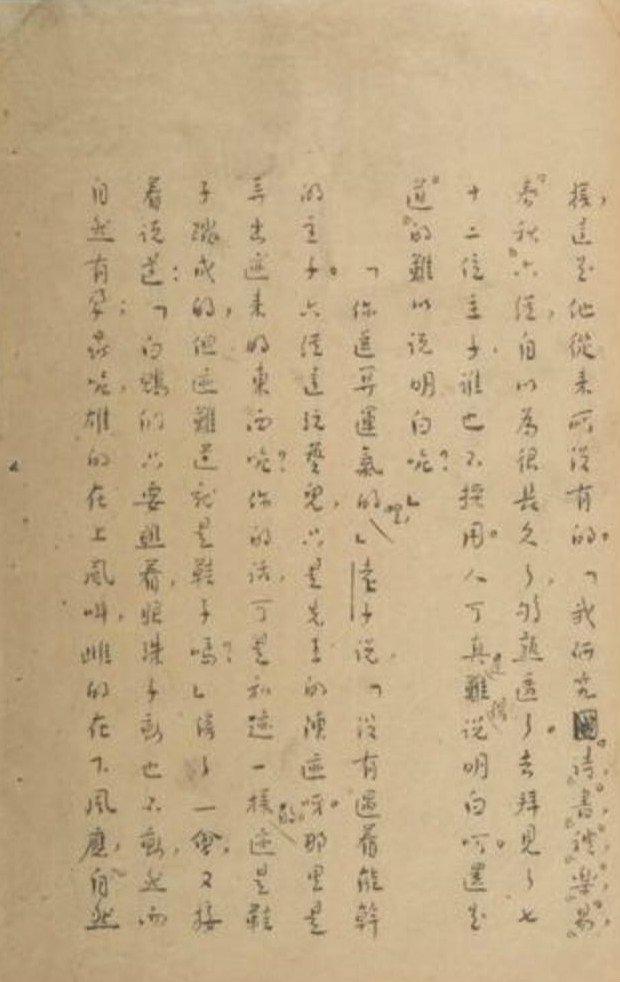 樣,這是他從來所沒有的。「我研究詩,書,禮,樂,易,
春秋六經,自以為很長久了,夠熟透了。去拜見了七
十二位主子,誰也不採用。人可真是難得說明白呵。還是
『道』的難以說明白呢?」
「你還算運氣的哩,」老子說,「沒有遇着能幹
的主子。六經這玩藝兒,只是先王的陳迹呀。那里是
弄出迹來的東西呢?你的話,可是和迹一樣的。迹是鞋
子踏成的,但迹難道就是鞋子嗎?」停了一會,又接
着說道:「白鶂們只要瞧着,眼珠子動也不動,然而
自然有孕;蟲呢,雄的在上風叫,雌的在下風應,自然